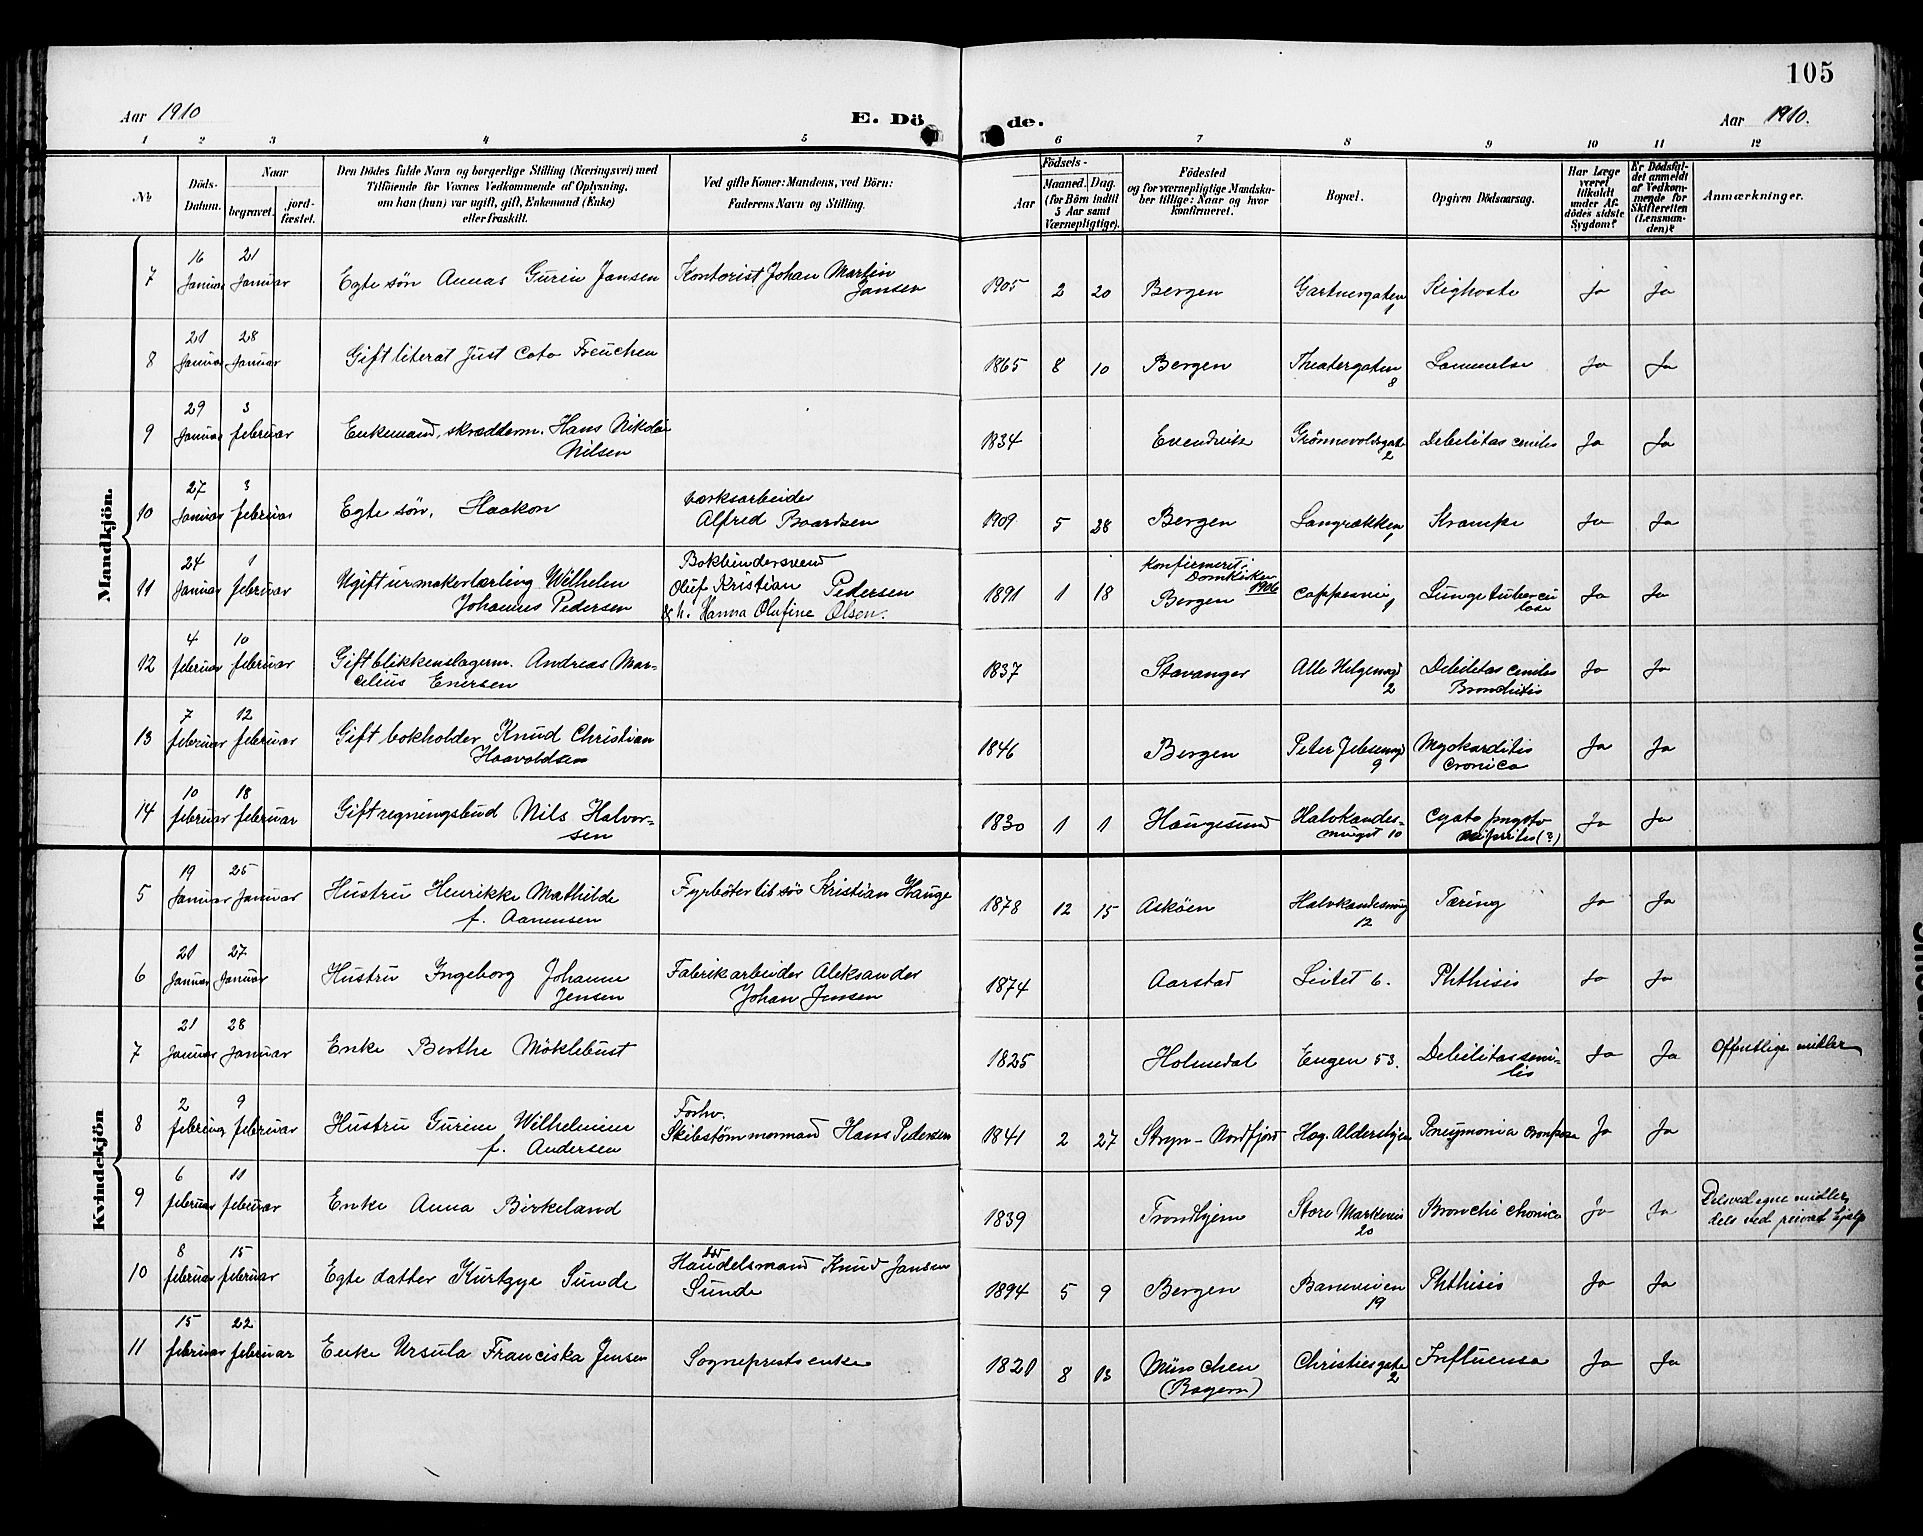 105
Aar 1910 E. Dö de. Aar 1910.
1 2 3 4 5 6 7 8 9 10 11 12
No
Döds-Datum.
Naar begravet. jordfæstet.
Den Dödes fulde Navn og borgerlige Stilling (Næringsvei) med
Tilföiende for Voxnes Vedkommende af Oplysning,
om han (hun) var ugift, gift, Enkemand (Enke)
eller fraskilt.
Ved gifte Koner: Mandens, ved Börn:
Faderens Navn og Stilling.
Födsels-
Aar Maaned. Dag.
(for Börn indtil
5 Aar samt
Værnepligtige).
Födested
og for værnepligtige Mandskaber
tillige: Naar og hvor
konfirmeret.
Bopæl.
Opgiven Dödsaarsag.
Har Læge
været
tilkaldt
under Afdödes
sidste
Sygdom?
Er Dödsfaldet
anmeldt
af Vedkommende
for
Skifteretten
(Lensmanden)?
Anmærkninger.
Mandkjön.
7 16 Januar 21 Januar Egte søn Annas Gurin Jansen Kontorist Johan Martin Jansen 1905 2 20 Bergen Gartnergaten 1 Kighoste Ja Ja
8 21 Januar 28 Januar Gift literat Just Cato Freuchen 1865 8 10 Bergen Theatergaten 8 Lammelse Ja Ja
9 29 Januar 3 februar Enkemand, skrædderm. Hans Nikolai Nilsen 1834 Evendvik Grønnevoldsgate 2 Debilitas cenilis Ja Ja
10 27 Januar 3 februar Egte søn, Haakon Værksarbeider Alfred Baardsen 1909 5 28 Bergen Langrækken 1 Krampe Ja Ja
11 24 Januar 1 februar Ugift urmakerlærling Wilhelm Johannes Pedersen Bokbindersvend Oluf Kristian Pedersen & h. Hanna Olufine Olsen. 1891 1 18 konfirmert i Domkirken 1906 Bergen Cappesmu 1 Lungetuberculose Ja Ja
12 4 februar 10 februar Gift blikkenslagerm. Andreas Marcelius Enersen 1837 Stavanger Alle Helgensgd 2 Debilitas cenilis Bronchitis Ja Ja
13 7 februar 12 februar Gift bokholder Knud Christian Haavoldsen 1846 Bergen Peter Jebsensgd 9 Myokarditis Cronica Ja Ja
14 10 februar 18 februar Gift regningsbud Nils Halvorsen 1830 1 1 Haugesund Halvkandesmuget 10 Ja Ja
Kvindekjön
5 19 Januar 25 Januar Hustru Henrikke Mathilde f. Aanensen Fyrbøter til søs Kristian Hauge 1878 12 15 Askøen Halvkandesmug 12 Tæring Ja Ja
6 21 Januar 27 Januar Hustru Ingeborg Johanne Jensen Fabrikarbeider Aleksander Johan Jensen 1874 Aarstad Leitet 6. Phthisis Ja Ja
7 21 Januar 28 Januar Enke Berthe Møklebust 1825 Holmedal Engen 53. Debilitas senilis Ja Ja Offentlige midler
8 2 februar 9 februar Hustru Gurine Wilhelmine f. Andersen Forhv. Skibstømmermand Hans Pedersen 1841 2 27 Stryn – Nordfjord Hag. Aldershjem Pneumonia Ja Ja
9 6 februar 11 februar Enke Anna Birkeland 1839 Trondhjem Store Markevei 20 Bronchi chonica Ja Ja Dels ved egne midler, dels ved privat hjelp
10 8 februar 15 februar Egte datter Kurtzye Sunde Handelsmand Knud Jansen Sunde 1894 5 9 Bergen Baneveien 19 Phthisis Ja Ja
11 15 februar 22 februar Enke Ursula Franciska Jensen Sogneprests enke 1821 8 13 München (Bayern) Christiesgate 2 Influensa Ja Ja